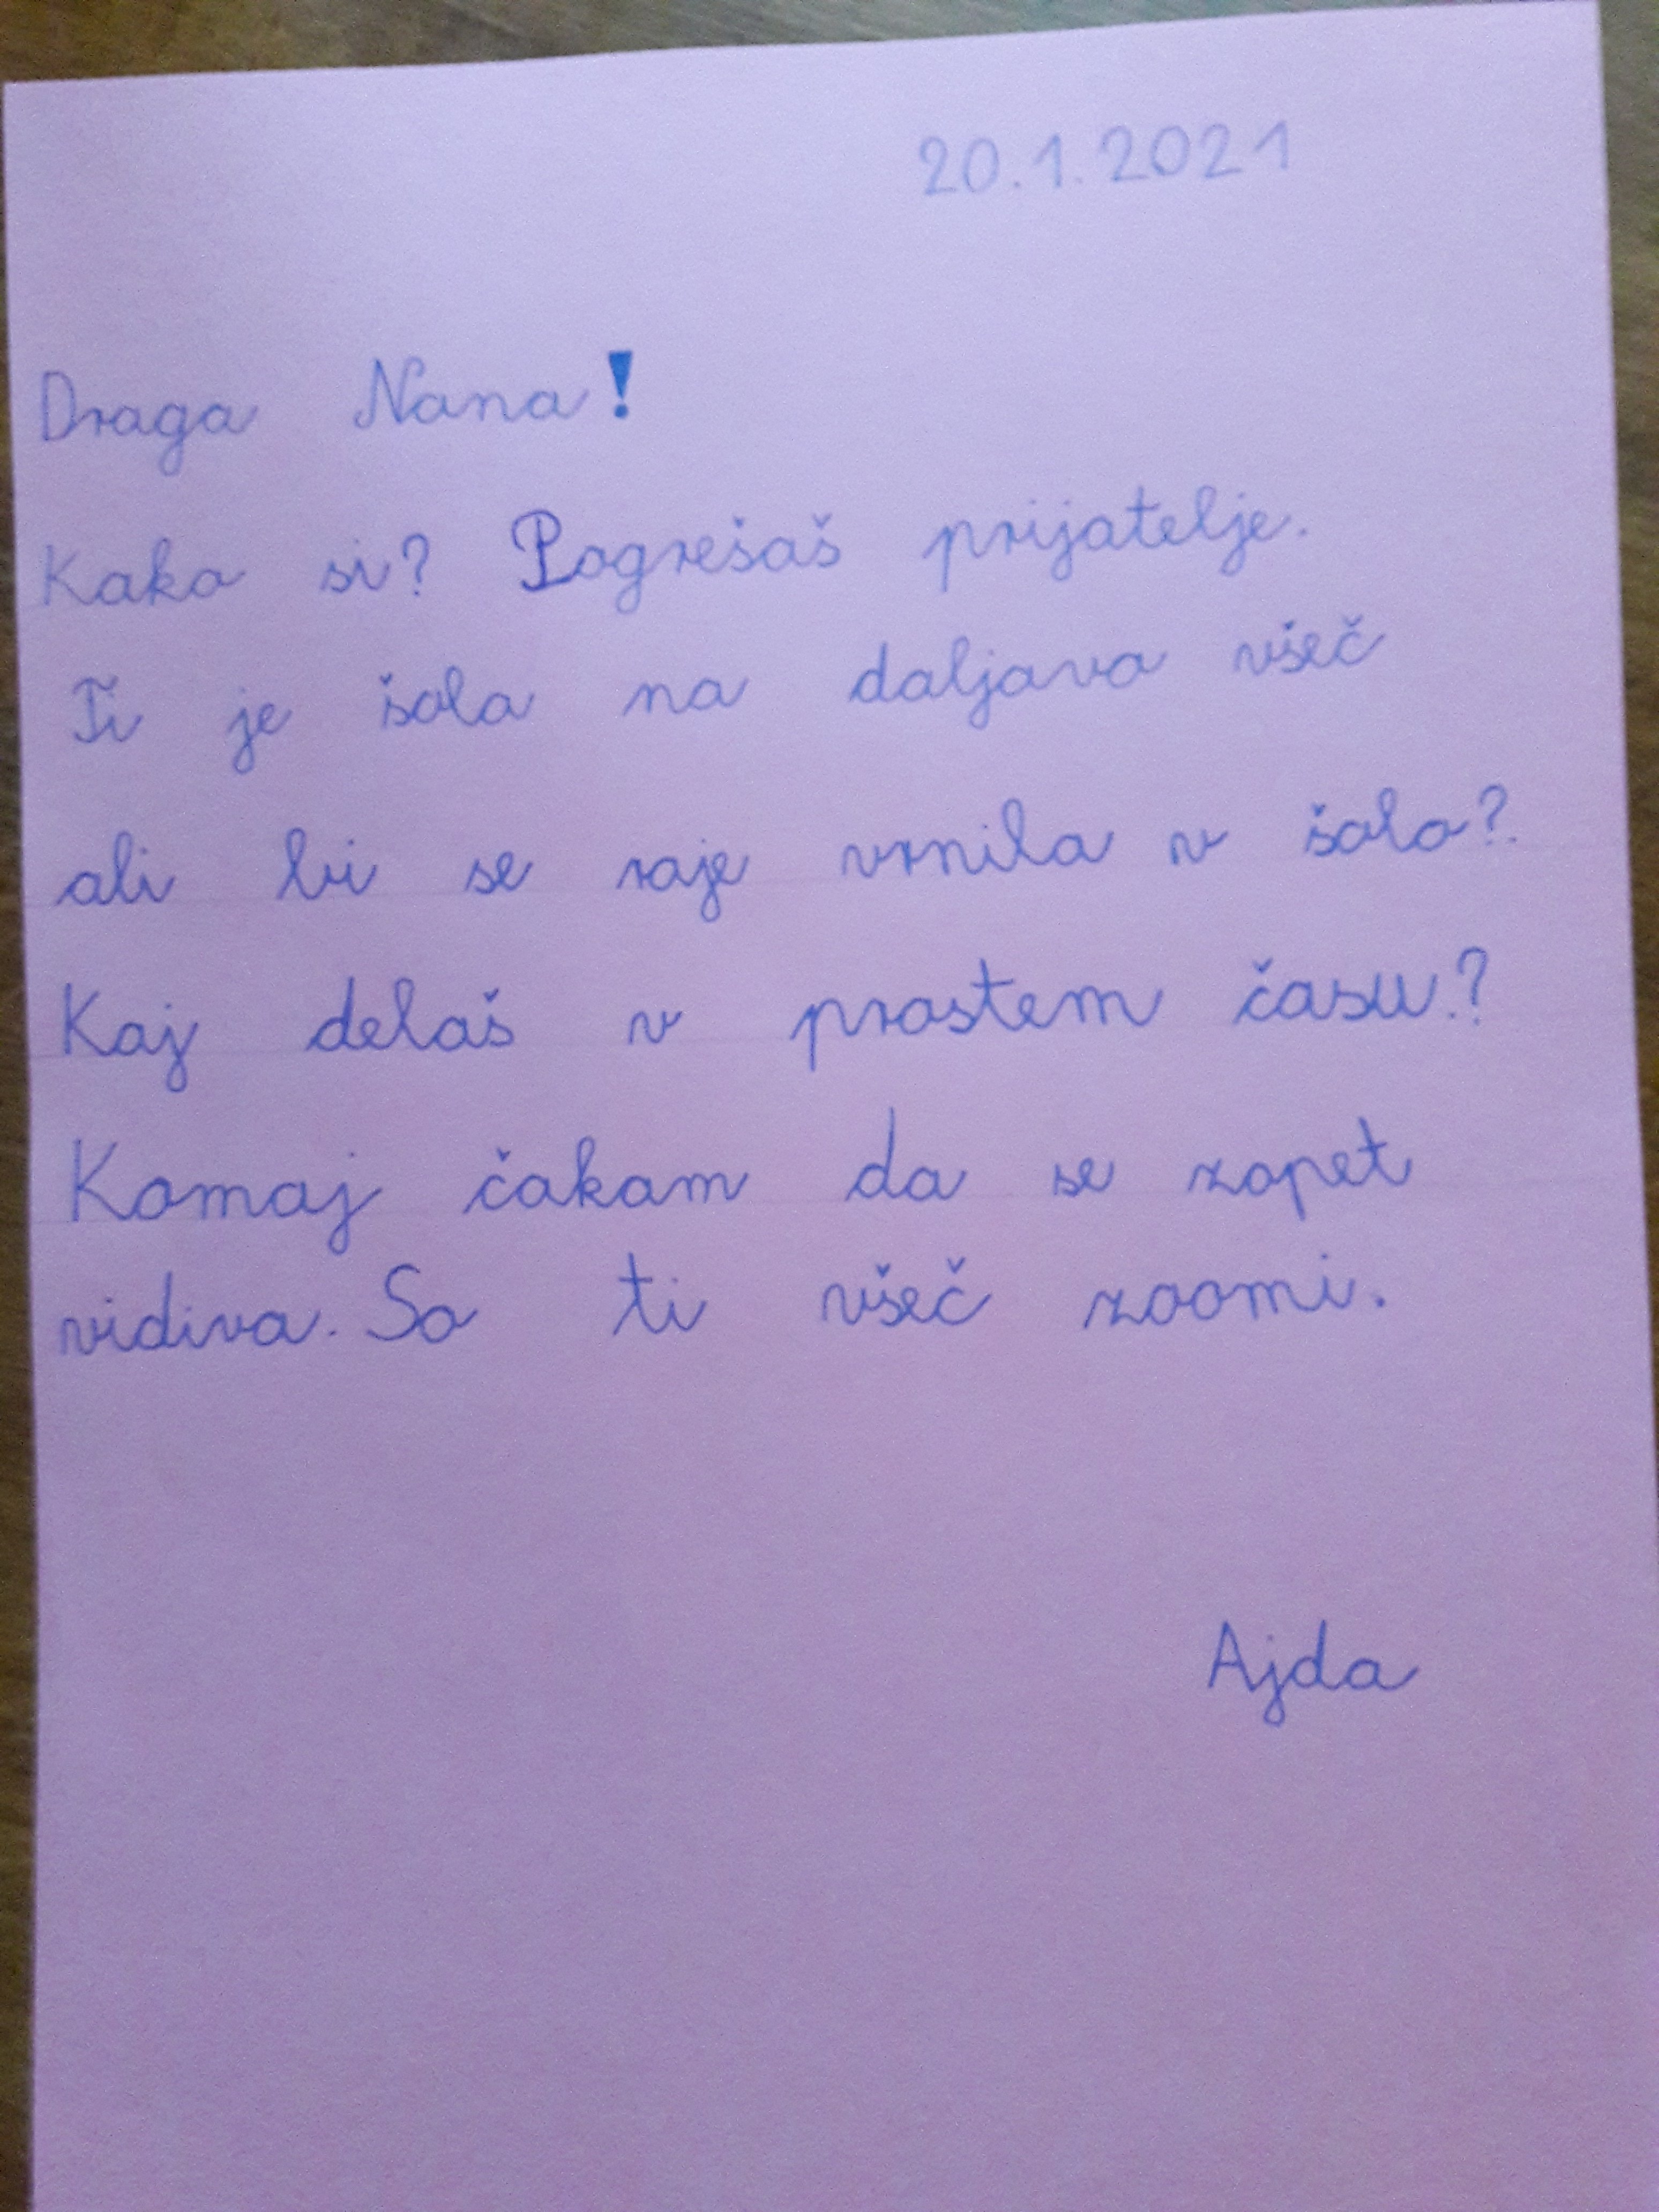 20.1.2021
Draga Nana!
Kako si? Pogrešaš prijatelje.
Ti je šola na daljava všeč
ali bi se raje vrnila v šolo?.
Kaj delaš v prostem času.?
Komaj čakam da se zopet
vidiva. So ti všeč zoomi.
Ajda